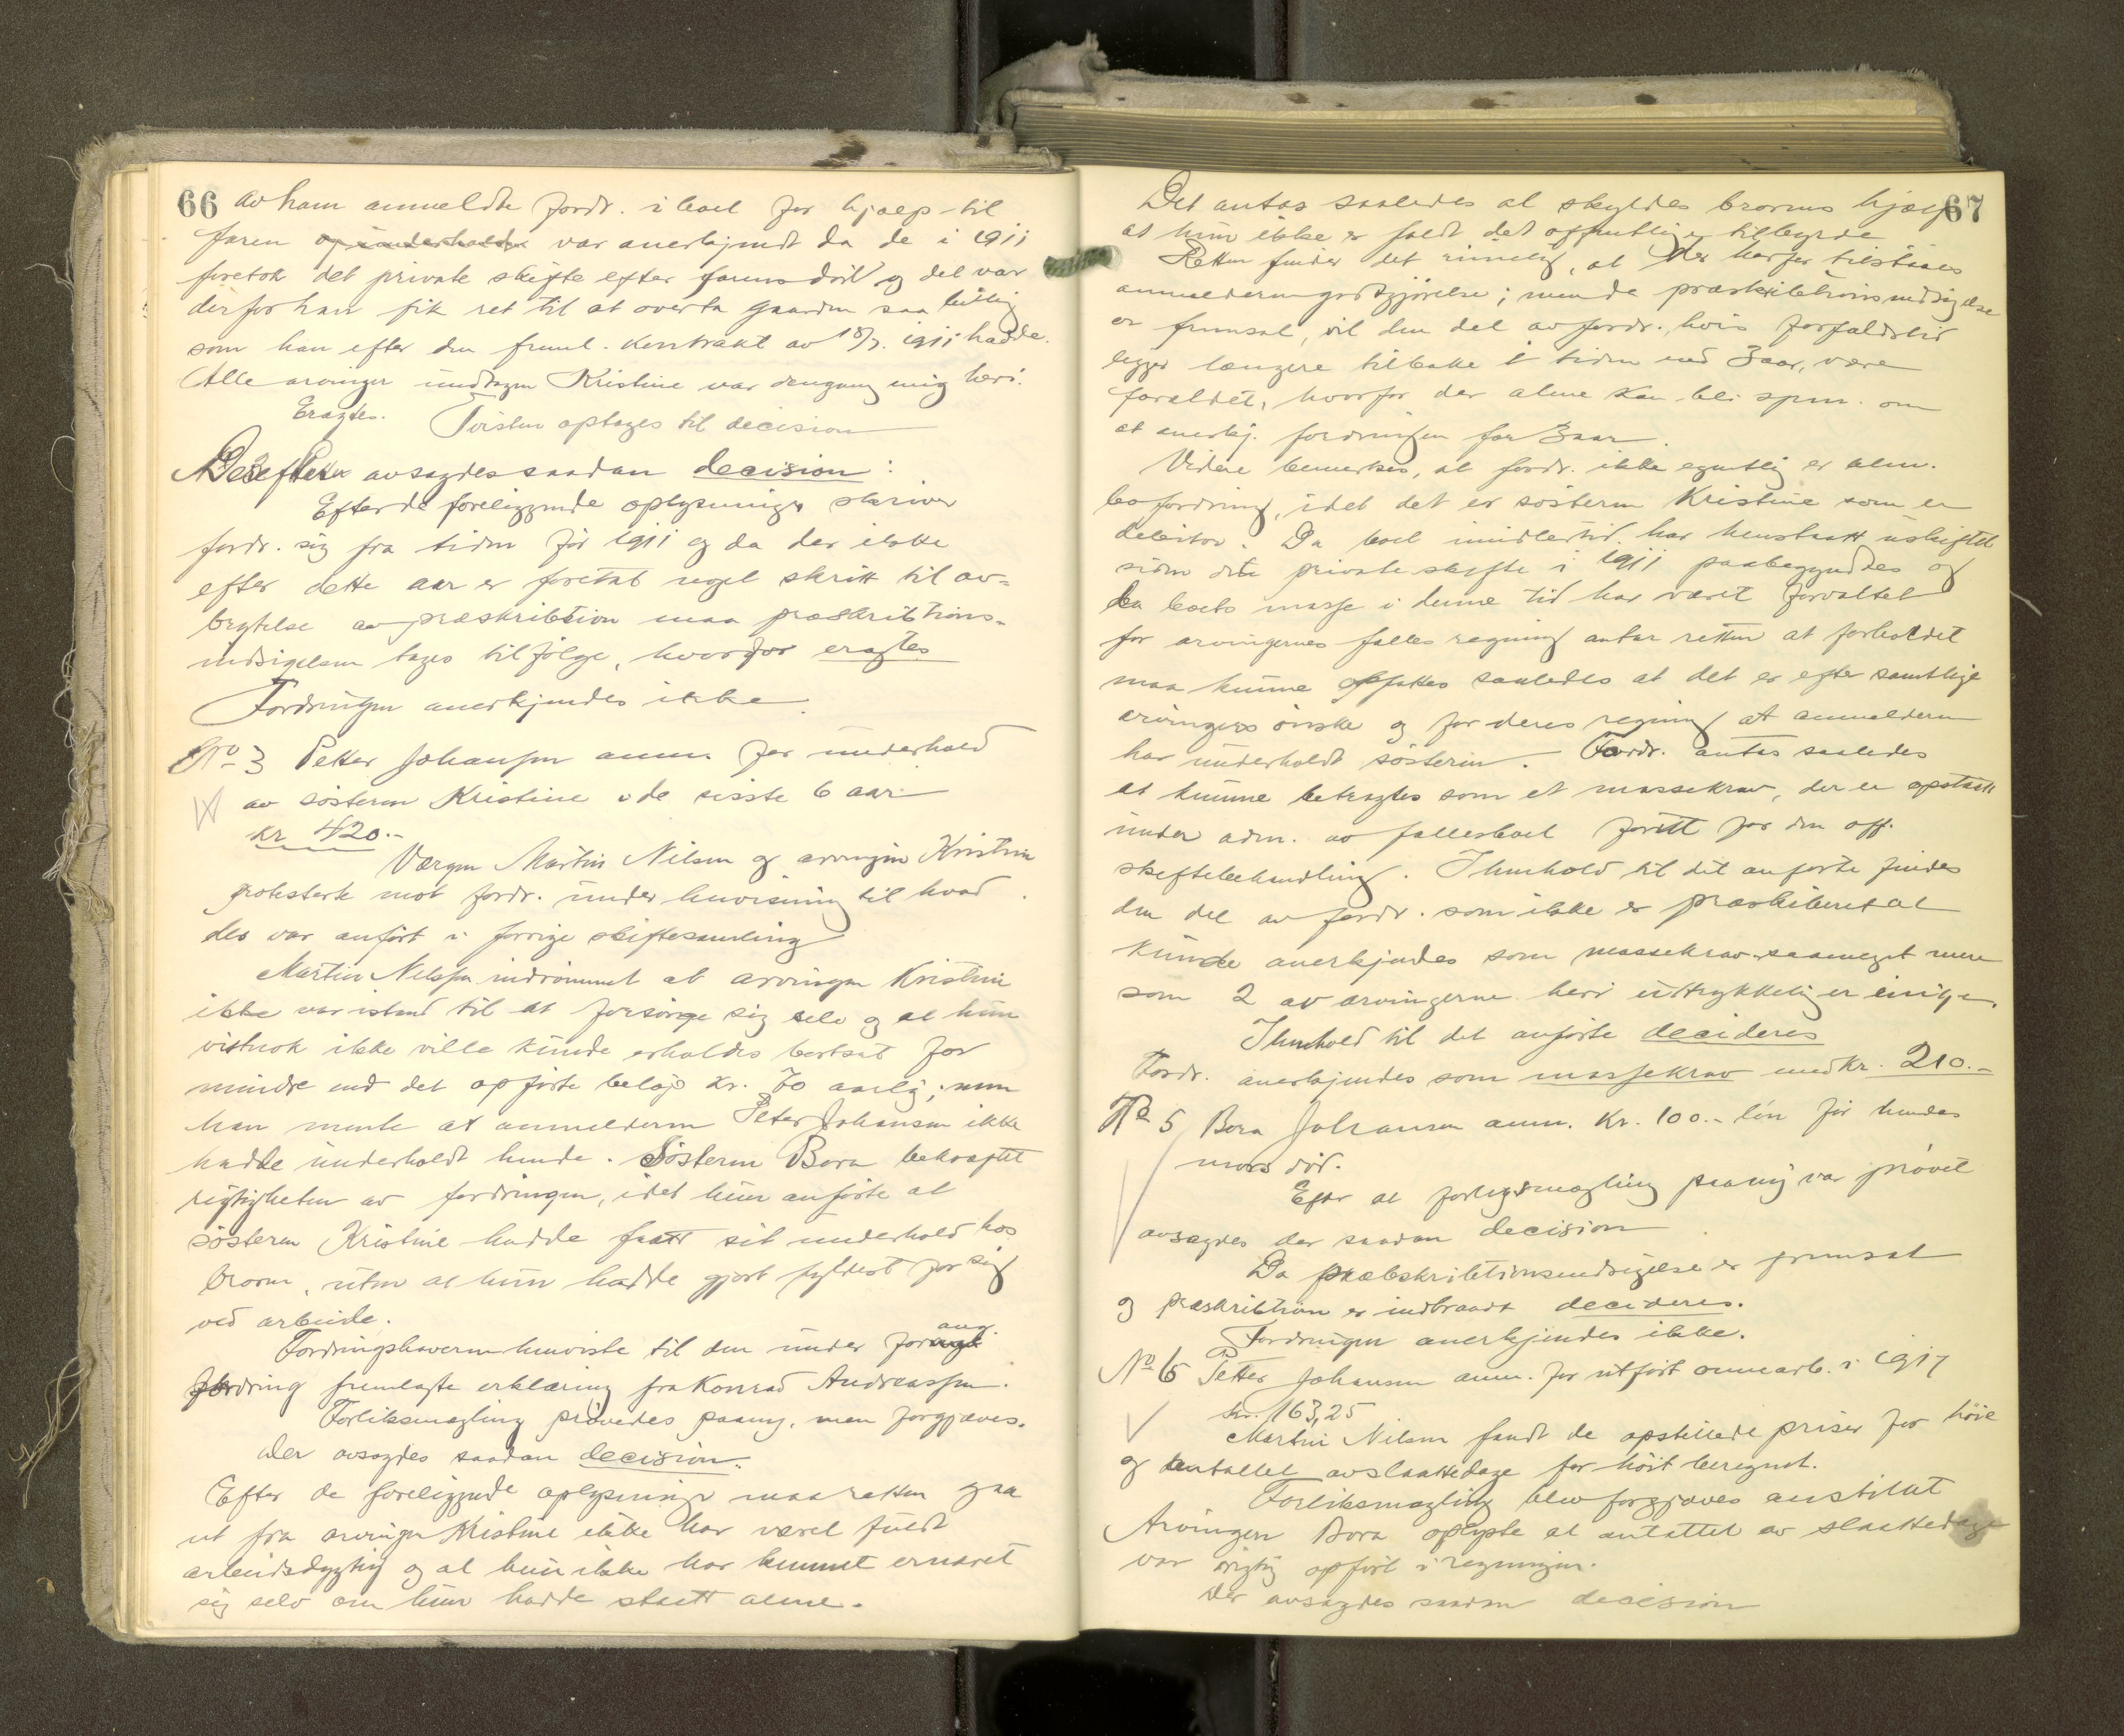 66
av ham anmeldte fordr. i boet for hjælp til
faren og underholdt var anerkjendt da de i 1911
foretok det private skifte efter farens död og det var
derfor han fik ret til at overta gaarden saa billig
som han efter den fremI. kontrakt av 18/7. 1911 hadde.
Alle arvinger undtagen Kristine var dengang enig heri.
Eragtes. Tvisten optages til decision
Derefter avsagdes saadan decision:
Efter de foreliggende oplysninger skriver
fordr. sig fra tiden för 1911 og da der ikke
efter dette aar er foretat noget skritt til av=
brytelse av præskribtion maa præskribtions-
indsigelsen tages tilfölge, hvorfor eragtes
Fordringen anerkjendes ikke.
No 3 Petter Johansen anm. for underhold
av søsteren Kristine i de sisste 6 aar
kr 420.-
Værgen Martin Nilsen og arvingen Kristine
protesterte mot fordr. under henvisning til hvad
der var anfört i forrige skiftesamling
Martin Nilsen indrömmet at arvingen Kristine
ikke var istand til at forsörge sig selv og at hun
vistnok ikke ville kunde erholdes bortsat for
mindre end det opförte belöp kr. 70 aarlig; men
han mente at anmelderen Peter Johansen ikke
hadde underholdt hende. Sösteren Bora bekræftet
rigtigheten av fordringen, idet hun anförte at
sösteren Kristine hadde faatt sit underhold hos
broren, uten at hun hadde gjort fyldest for sig
ved arbeide.
Fordringshaveren henviste til den under forang.
fordring fremlagte erklæring fra Konrad Andreassen.
Forliksmægling prövedes paany, men forgjæves.
Der avsagdes saadan decision.
Efter de foreliggende oplysninger maa retten gaa
ut fra arvingen Kristine ikke har været fuldt
arbeidsdygtig og at hun ikke har kunnet ernæret
sig selv om hun hadde staatt alene.
67
Det antas saaledes at skyldes brorens hjælp
at hun ikke er faldt det offentlige tilbyrde
Retten finder det rimelig, at der herfor tilstaaes
anmelderen godtgjörelse; men da præskribtionsindsigelse
er fremsat, vil den del av fordr., hvis forfaldstid
ligger længere tilbake i tiden end 3 aar, være
foraldet, hvorfor der alene kan bli spm. om
at anerkj. fordringen for 3 aar.
Videre bemerkes, at fordr. ikke egentlig er alm.
bofordring, idet det er sösteren Kristine som er
debitor. Da boet imidlertid har henstaatt uskiftet
siden det private skifte i 1911 paabegyndtes og
da boets masse i denne tid har været forvaltet
for arvingernes fælles regning antar retten at forholdet
maa kunne opfattes saaledes at det er efter samtlige
arvingers önske og for deres regning at anmelderen
har underholdt sösteren. Fordr. antas saaledes
at kunne betragtes som et massekrav, der er opstaatt
under adm. av fællesboet forutt for den off.
skiftebehandling. I henhold til det anförte findes
den del av fordr. som ikke er præskiberet at
kunde anerkjendes som massekrav saameget mere
som 2 av arvingerne heri uttrykkelig er enige.
I henhold til det anförte decideres
Fordr. anerkjendes som massekrav med kr. 210.-
No 5 Bora Johansen anm. kr. 100.- lön för hendes
mors död.
Efter at forligsmægling paany var prövet
avsagdes der saadan decision
Da præskribtionsindsigelse er fremsat
og præskribtion er indtraadt decideres.
Fordringen anerkjendes ikke.
No 6 Petter Johansen anm. for utfört onnearb. i 1917
kr. 163,25
Martin Nilsen fandt de opstillede priser for höie
og antallet av slaattedage for höit beregnet.
Forliksmægling blev forgjæves anstillet
Arvingen Bora oplyste at antallet av slaattedage
var rigtig opfört i regningen.
Der avsagdes saadan decision